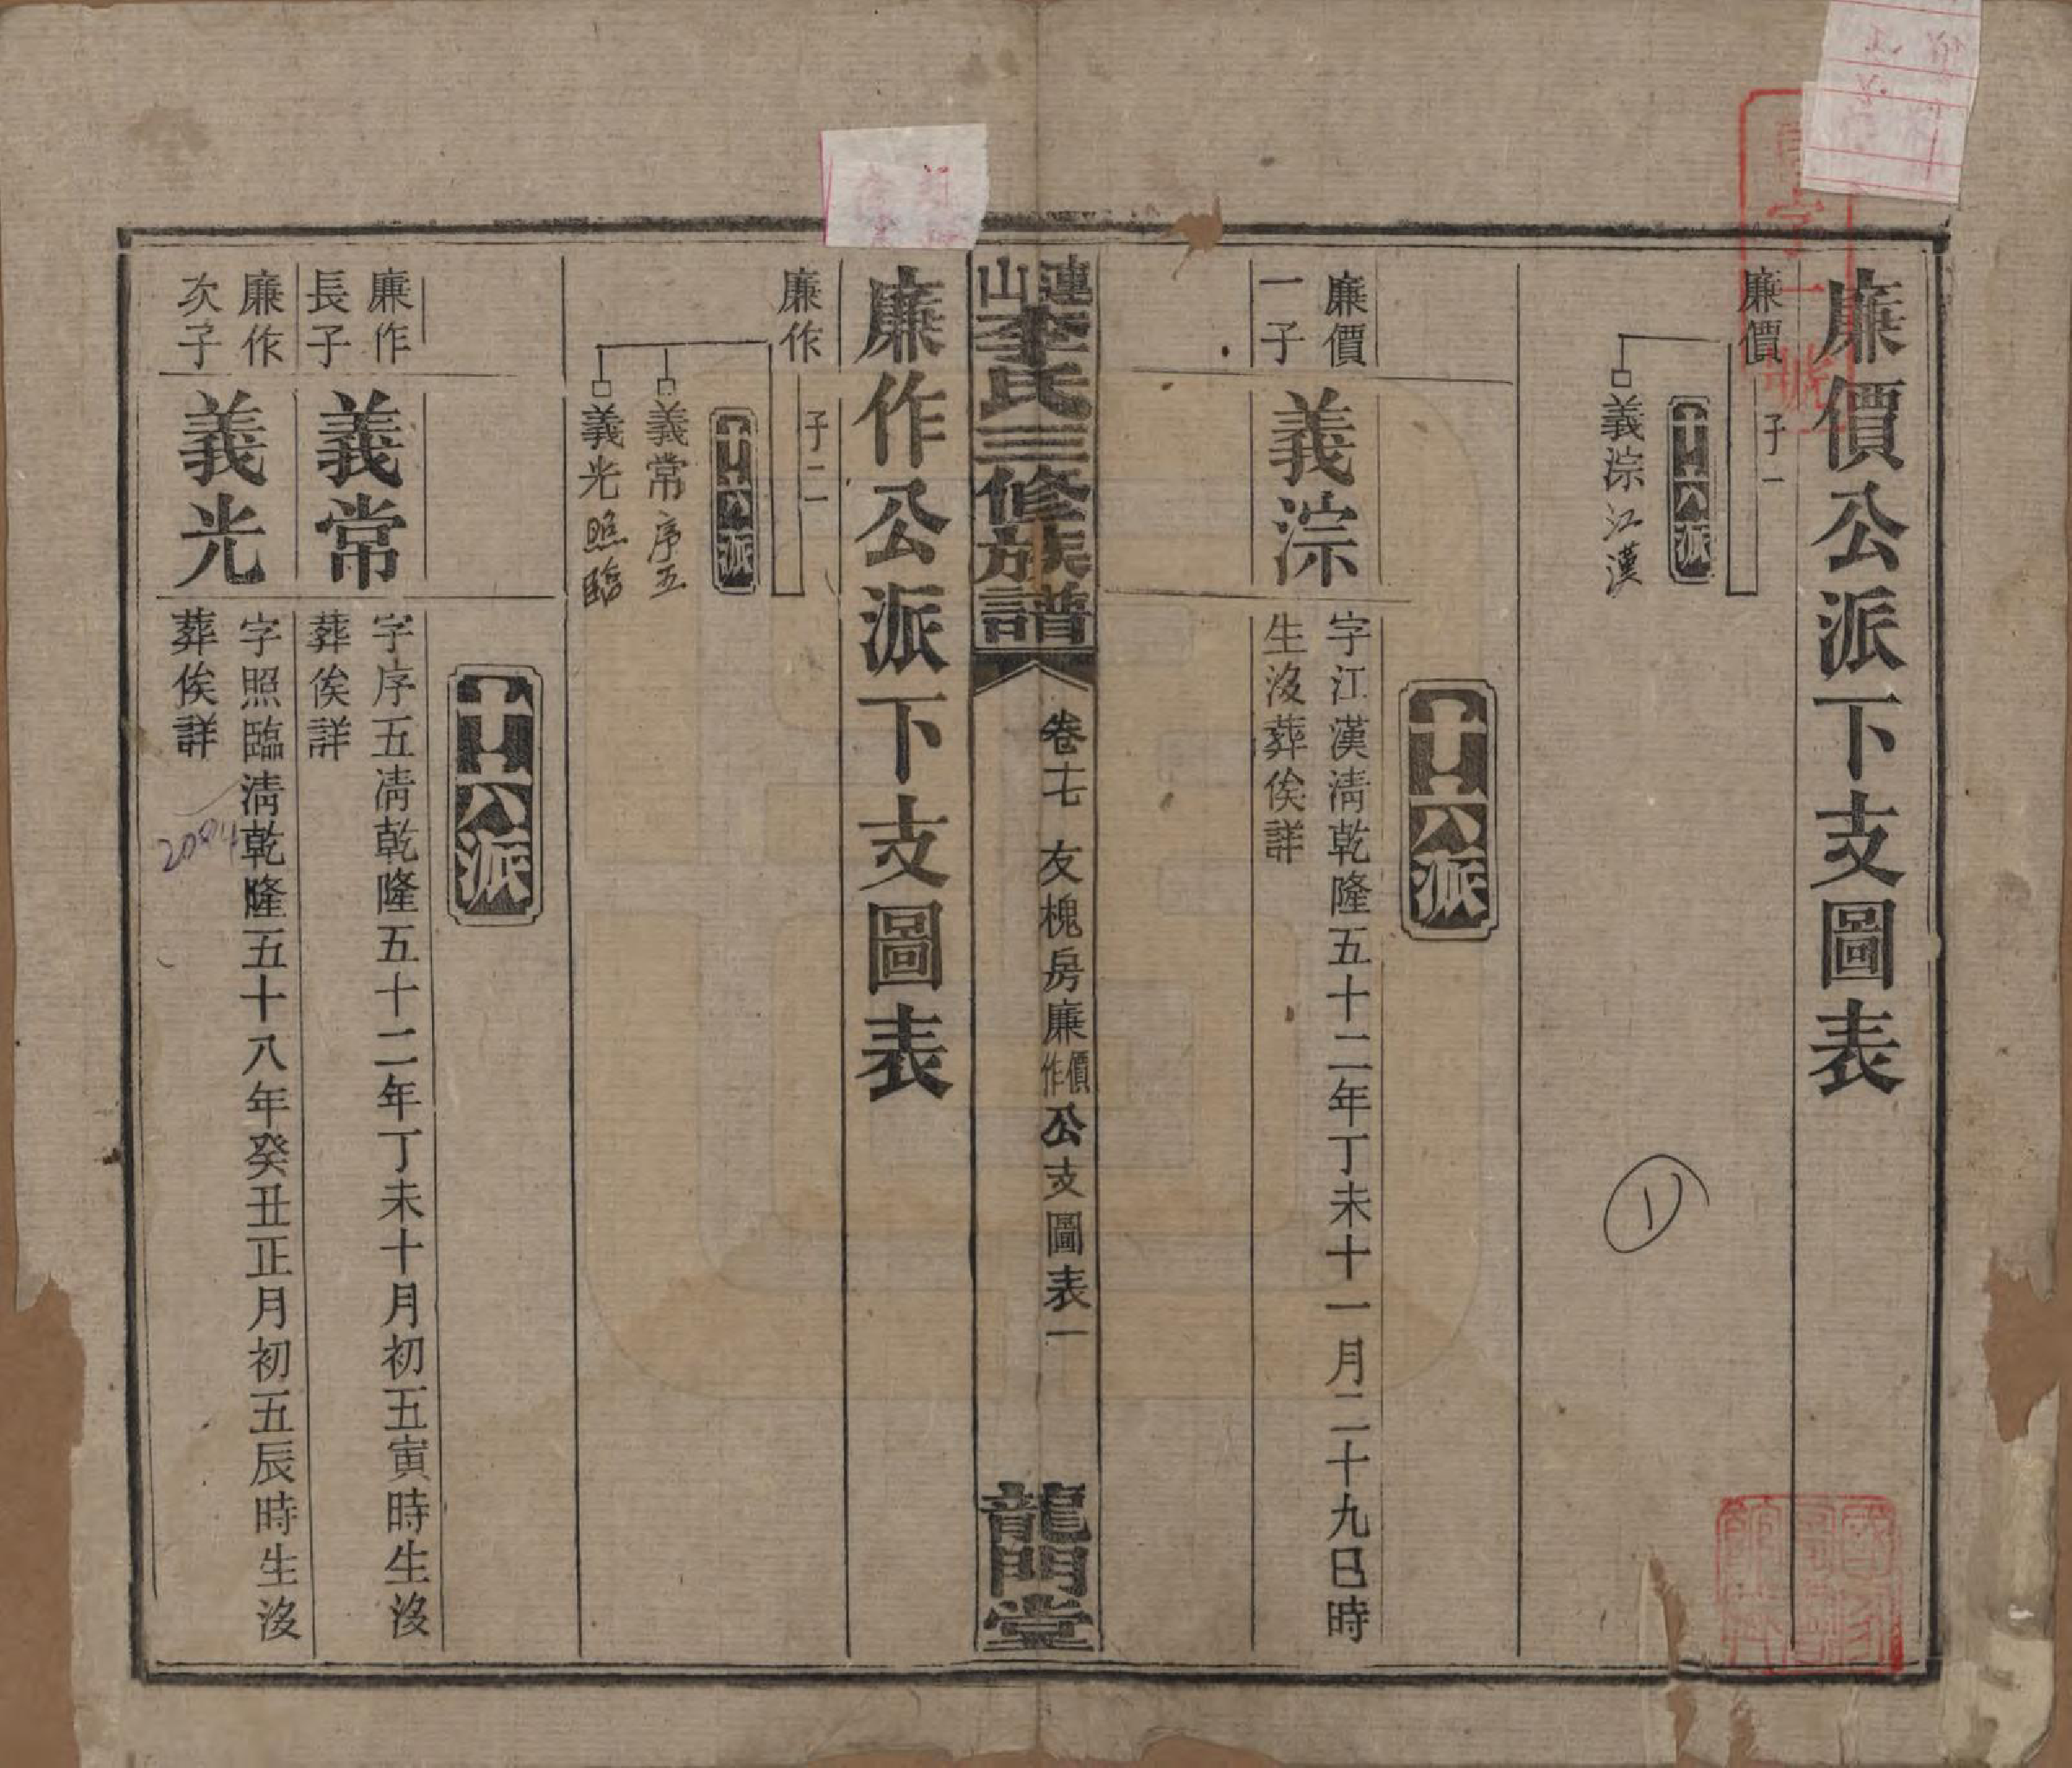 廉價公派下支圖表
廉價
子一
十六派
義淙江漢
十六派
廉價
一子
義淙
字江漢清乾隆五十二年丁未十一月二十九巳時
生沒葬俟詳
連山李氏三修族譜
卷十七
友槐房廉價作公支圖表一
龍門堂
廉作公派下支圖表
廉作
子二
十六派
義常序五
義光照臨
十六派
廉作
長子
義常
字序五清乾隆五十二年丁未十月初五寅時生沒
葬俟詳
廉作
次子
義光
字照臨清乾隆五十八年癸丑正月初五辰時生沒
葬俟詳
2004
1